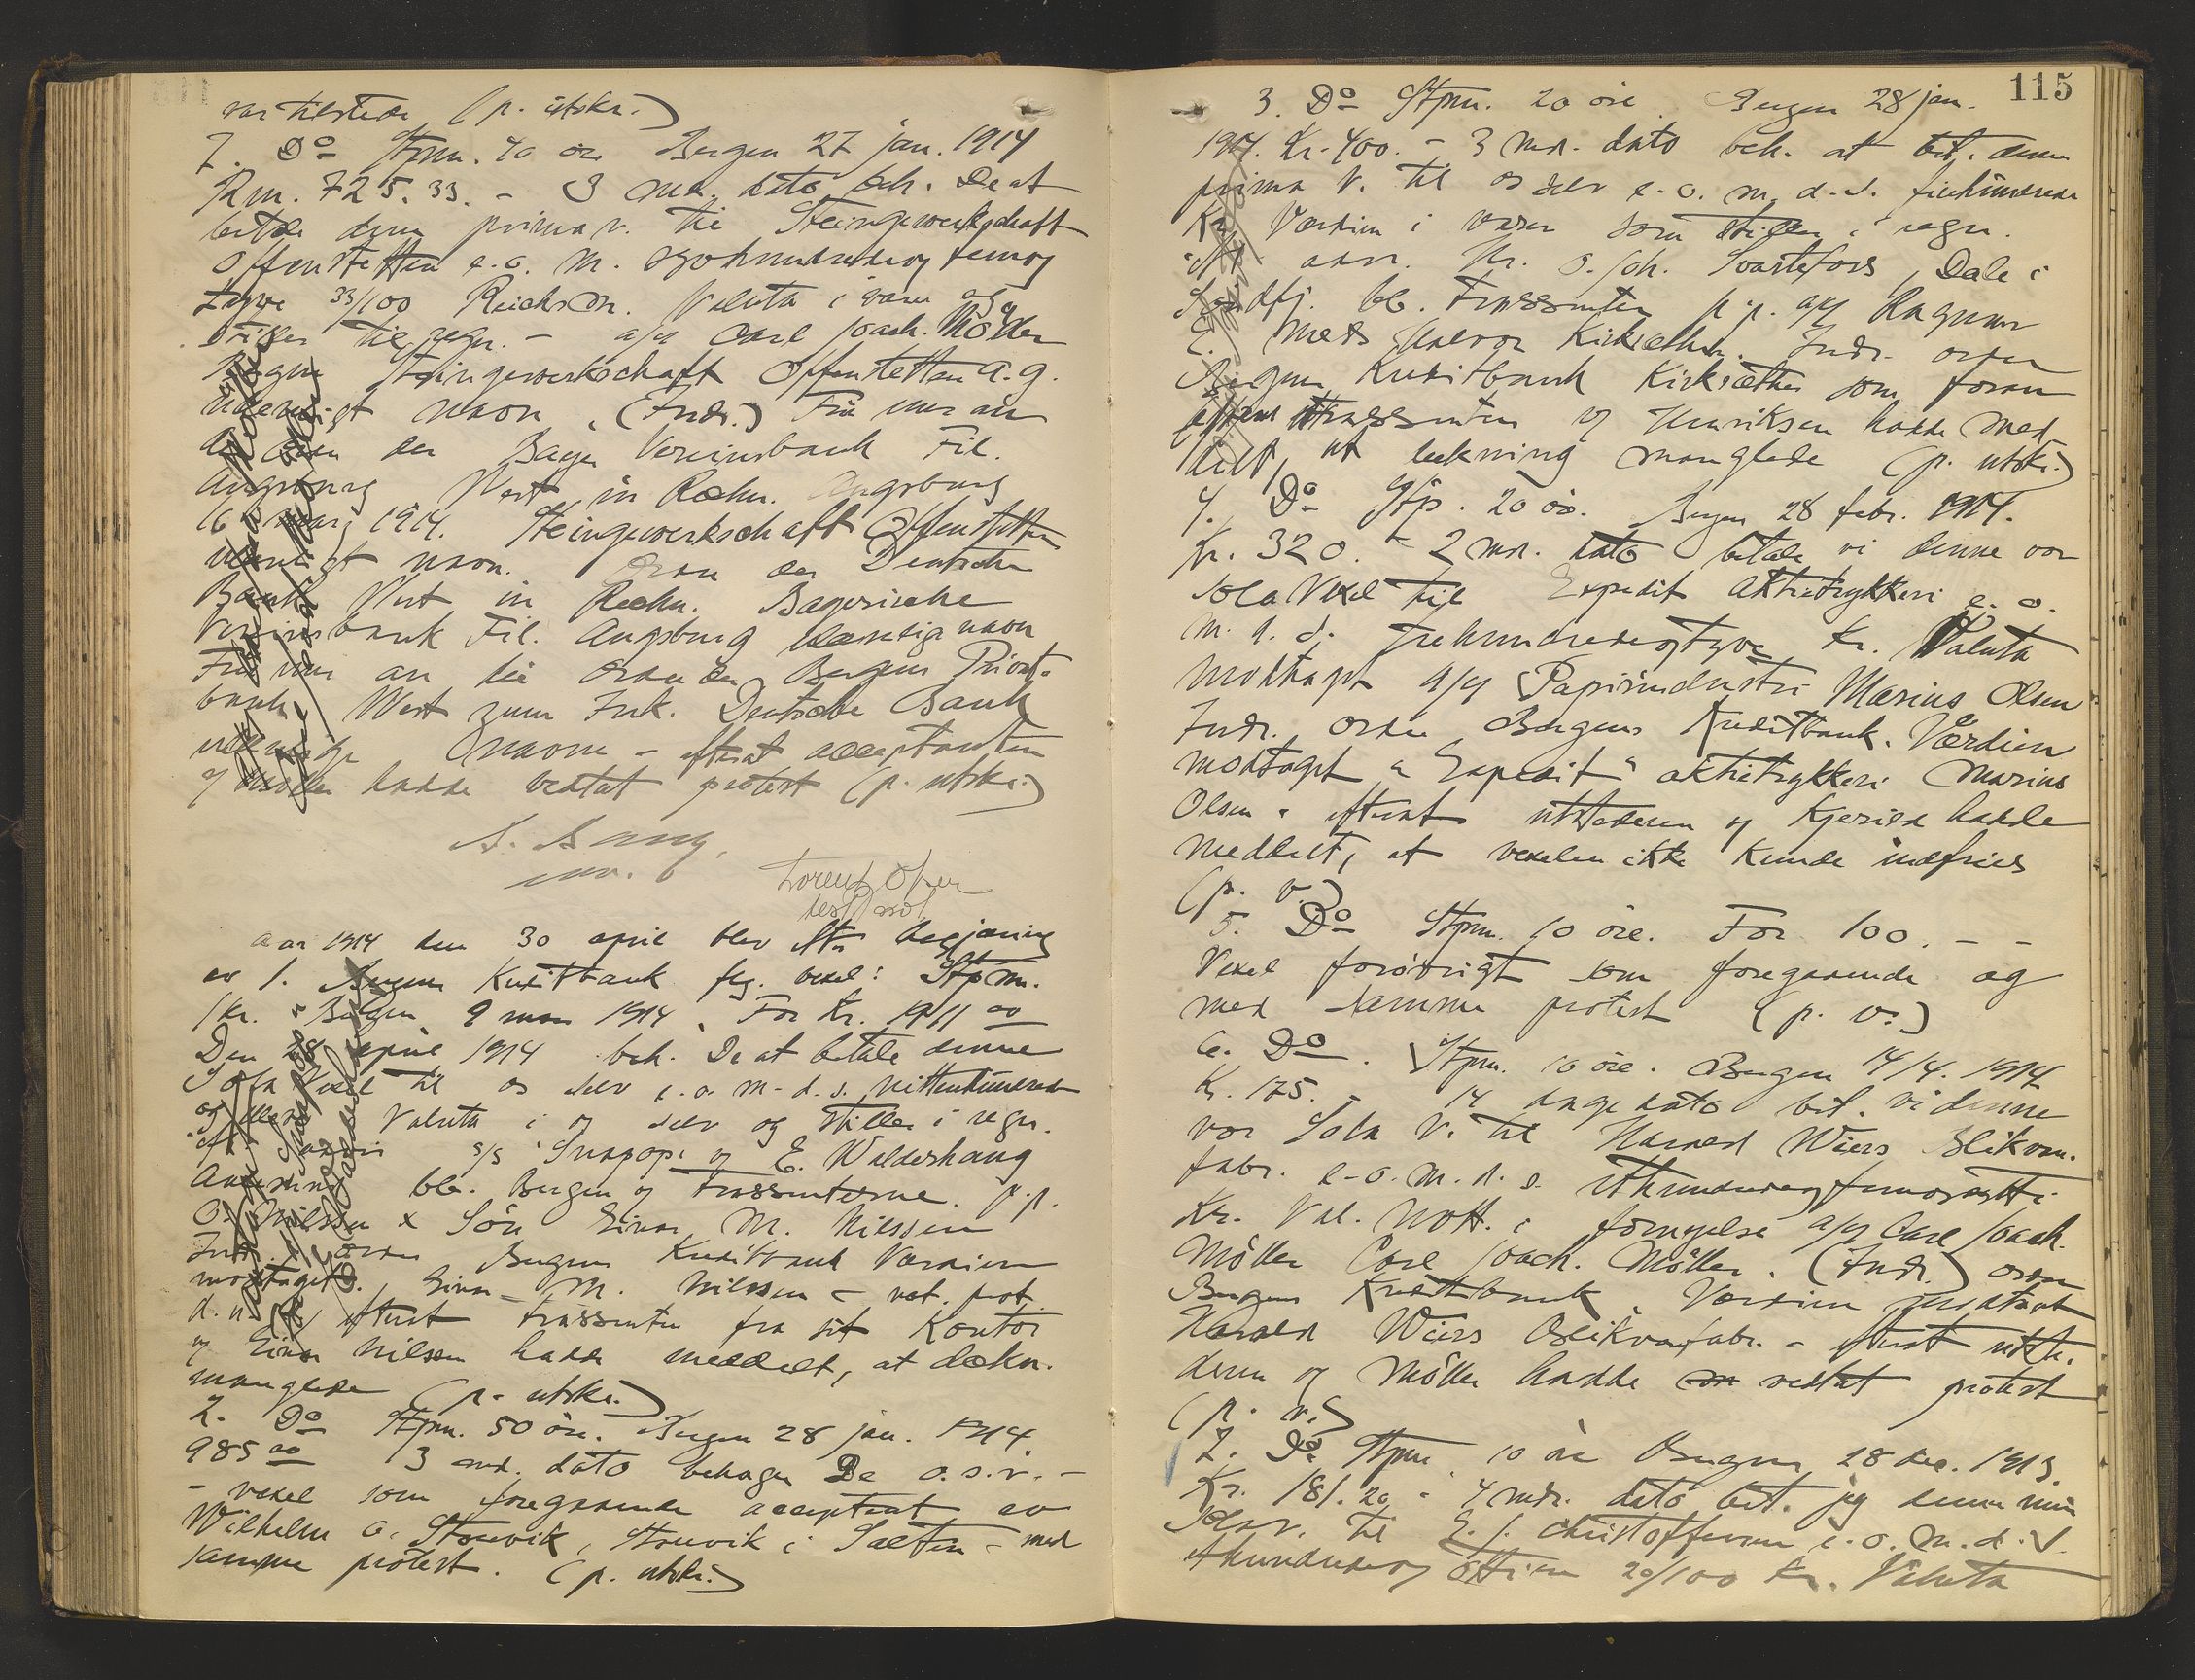 var tilstede (p. utskr.)
7. Do Stpm. 40 øre Bergen 27 jan. 1914
Rm. 725.33. - 3 md. dato beh. De at
betale denne prima v. til Steingewerkschaft
Offenstetten e. o. m. syvhundrede og femog
tyve 33/100 Reichsm. Valuta i varer og
stilles til regn. - a/g Carl Joach. Möller
Bergen Steingewerkschaft Offenstetten A.G.
utydeligt navn. (Inds.) Für uns an
die Order der Bayer Vereinsbank Fil.
Augsburg Wert in Rechn. Augsburg
16 1914. Steingewerkschaft Offenstetten
navn. Order der Deutsche
Bank Wert in Rechn. Bayerische
Vereinsbank Fil. Augsburg navn
Für uns an die Order der Bergens Privat-
bank Wert zum Ink. Deutsche Bank
navne - efterat acceptanten
og Möller hadde vedtat protest (p. utskr.)
Aar 1914 den 30 april blev efter begjæring
av 1. Bergens Kreditbank flg. vexel: Stpm.
1 kr. " Bergen 9 mars 1914. For Kr. 1911 00
Den 28 april 1914 beh. De at betale denne
Sola Vexel til os selv e. o. m. d. s. nittenhundrede
og elleve Valuta i os selv og stilles i regn.
s/s "Snapop" og E. Walderhaug
bb. Bergen og trassenterne p.p.
O. Nilssen & Søn Einar M. Nilssen
Inds. ordre Bergens Kreditbank Værdien
mottaget. Einar M. Nilssen - vet. prot.
d. u. efterat trassenten fra sit Kontor
og Einar Nilssen hadde meddelt, at dækn.
manglede (p. utskr.)
2. Do Stpm. 50 øre. Bergen 28 jan. 1914.
985 00 3 md. dato behager De o.s.v. -
- vexel som foregaaende acceptert av
Wilhelm Storvik, Storvik i Salten - med
samme protest. (p. utskr.)
115
3. Do Stpm. 20 øre Bergen 28 jan.
1914. Kr. 400. - 3 md. dato beh. at bet. denne
prima v. til os selv e. o. m. d. s. firehundrede
Kr. Værdien i varer som stilles i regn.
Hr. S. Joh. Svartefoss, Dale i
Søndfj. bb. trassenten p.p. a/s Ragnar
Halvor Kirksæther. Inds. ordre
Bergens Kreditbank Kirksæther som foran
efterat trassenten og Henriksen hadde med-
delt, at dekning manglede (p. utskr.)
4. Do Stp. 20 øre. Bergen 28 febr. 1914.
Kr. 320. - 2 md. dato betaler vi denne vor
Sola Vexel til Expedit Aktietrykkeri e. o.
m. d. s. trehundredeogtyve kr. Valuta
mottaget a/s Papirindustri Marius Olsen
Inds. ordre Bergens Kreditbank. Værdien
mottaget "Expedit" aktietrykkeri Marius
Olsen - efterat utstederen og Kjerulf hadde
meddelt, at vexelen ikke kunde indfries
(p. v.)
5. Do Stpm. 10 øre. For 100. - -
Vexel forøvrigt som foregaaende og
med samme protest (p. v.)
6. Do. Stpm. 10 øre. Bergen 14/4. 1914
Kr. 175. - 14 dage dato bet. vi denne
vor Sola v. til Harald Wiers Blikvare-
fabr. e. o. m. d. s. ethundredeogfemogsytti
Kr. Val. mott. i fornyelse a/s Carl Joach.
Möller Carl Joach. Möller. (Inds.) ordre
Bergens Kreditbank Værdien mottat
Harald Wiers Blikvarefabr. - efterat utste-
deren og Möller hadde vedtat protest
(p. v.)
7. Do Stpm. 10 øre Bergen 28 dec. 1913.
Kr. 181.20 - 4 mdr. dato bet. jeg denne min
Sola v. til E. J. Christoffersen e. o. m. d. s.
ethundredeog ottien 20/100 Kr. Valuta